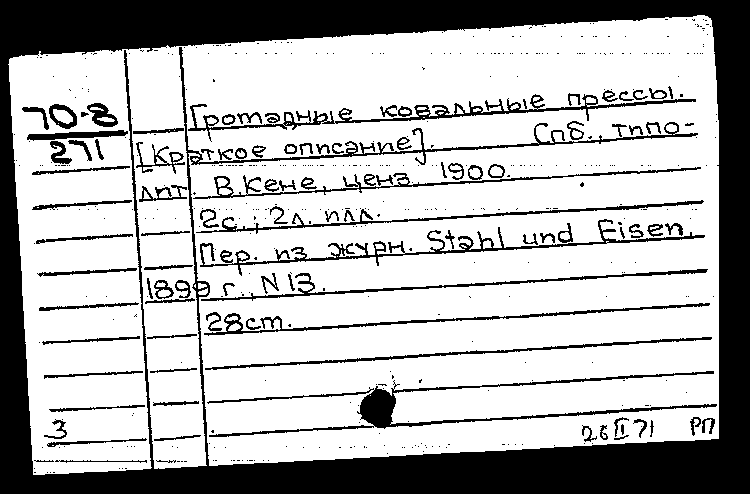 70-8
271
Громадные ковальные прессы.
[Краткое описание]. Спб., типо-
лит. В.Кене, ценз. 1900.
2с.; 2л. илл.
Пер. из журн. Stahl und Eisen,
1899 г., N 13.
28cm.
3
26 II 71 РП